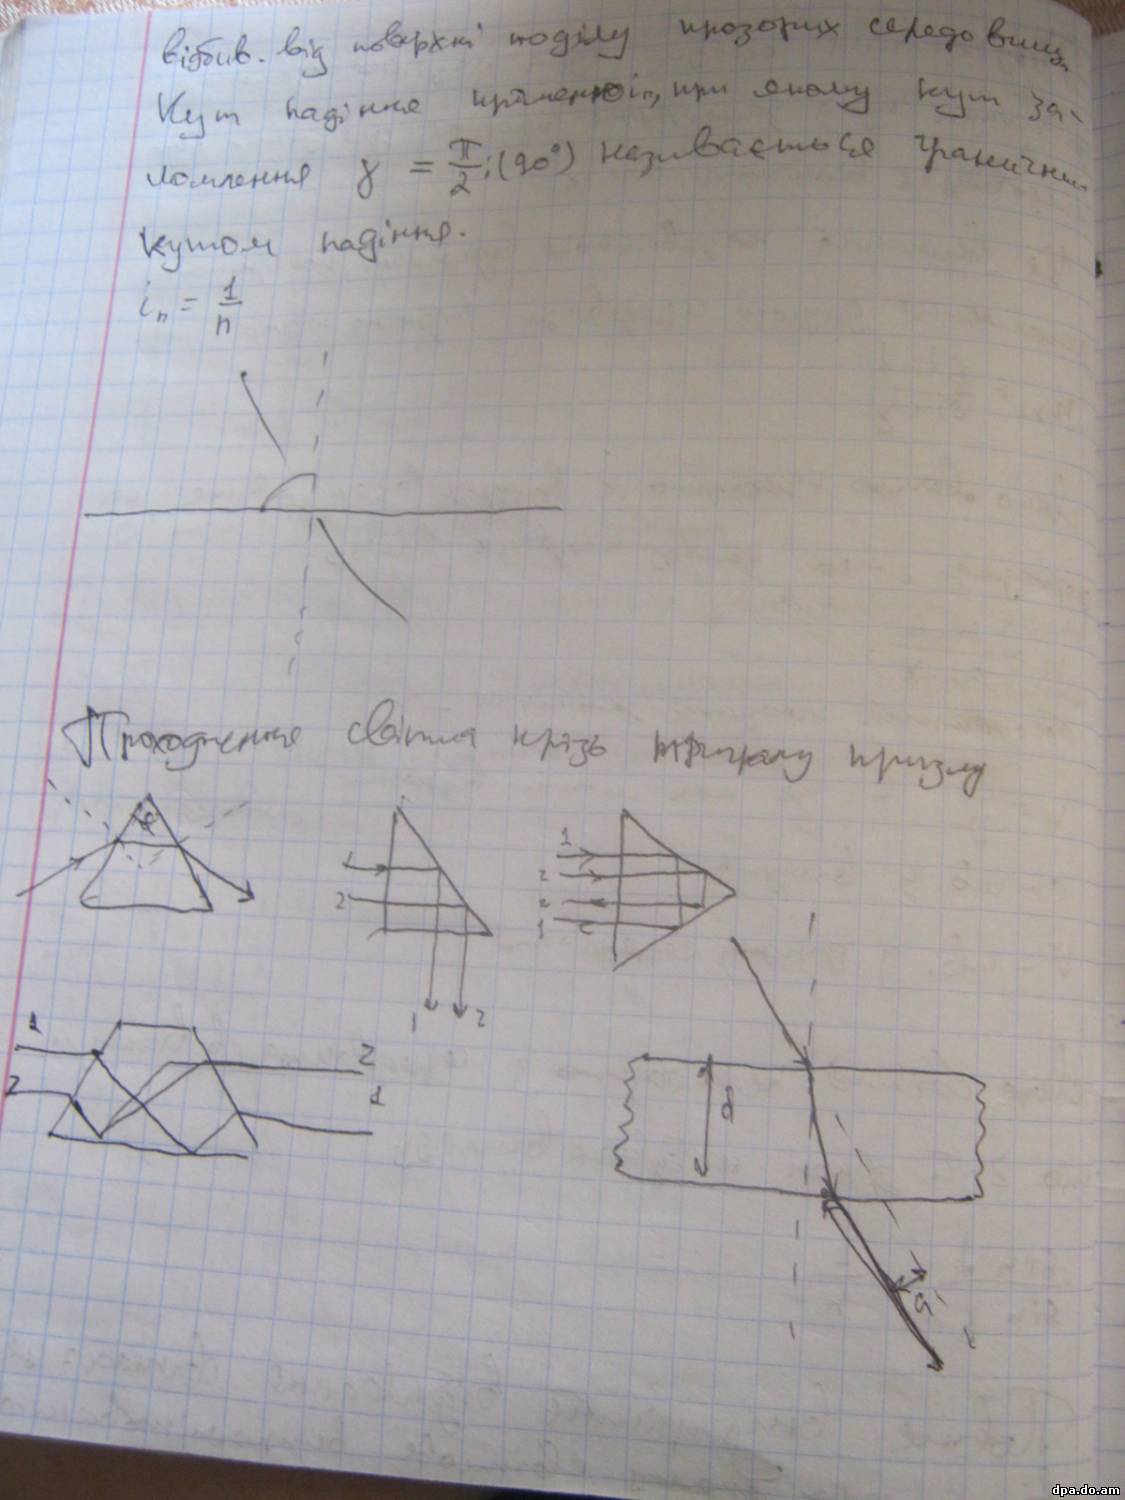 відбив. від поверхні поділу прозорих середовищ.
Кут падіння променю iп, при якому кут за-
ломлення γ = π/2; (90°) називається граничним
кутом падіння.
iп = 1/n
Проходження світла крізь тригранну призму
1
1
2
2
2
1
1
2
1
2
2
1
d
dpa.do.am